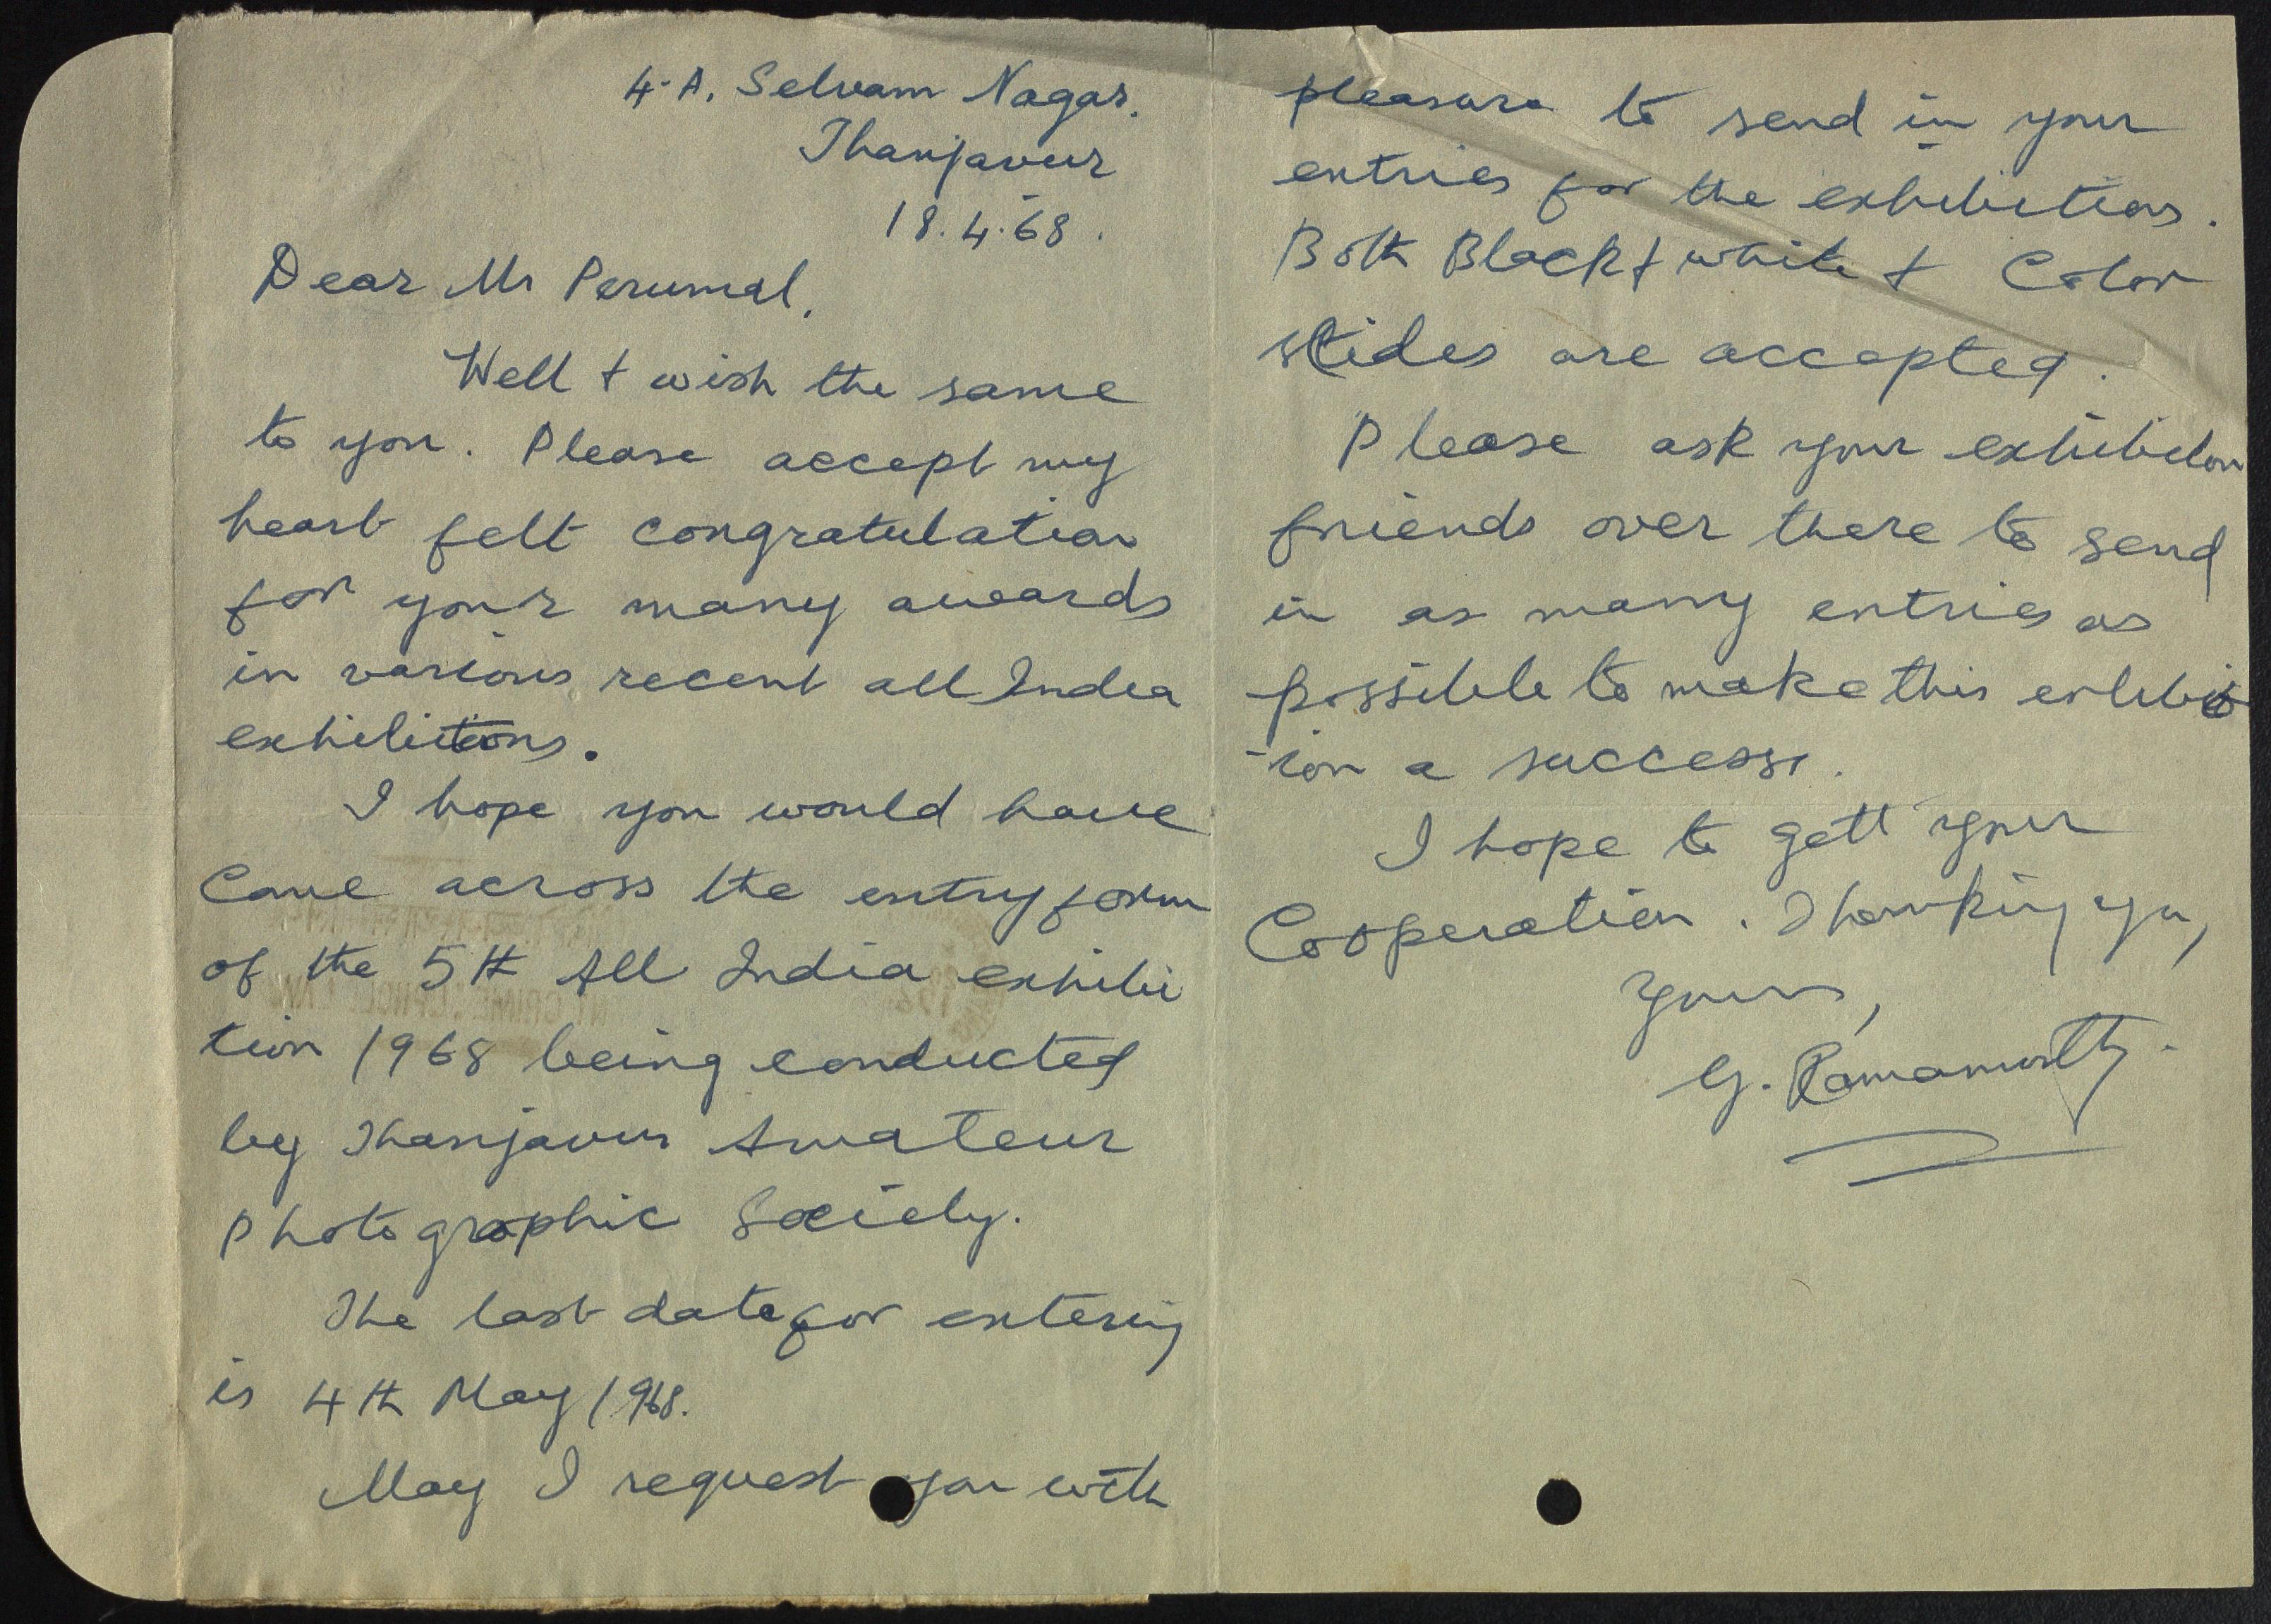 4-A, Selvam Nagar.
Thanjavur
18.4.68.
Dear Mr Perumal,
Well & wish the same
to you. Please accept my
heart felt congratulation
for your many awards
in various recent all India
exhibitions.
I hope you would have
came across the entry form
of the 5th All India exhibi
tion 1968 being conducted
by Thanjavur Amateur
Photographic Society.
The last date for entering
is 4th May 1968.
May I request you with
pleasure to send in your
entries for the exhibition.
Both Black & white & Color
slides are accepted.
Please ask your exhibition
friends over there to send
in as many entries as
possible to make this exhibit
-ion a success.
I hope to gett your
Cooperation. Thanking you,
yours,
G. Ramamurthy.